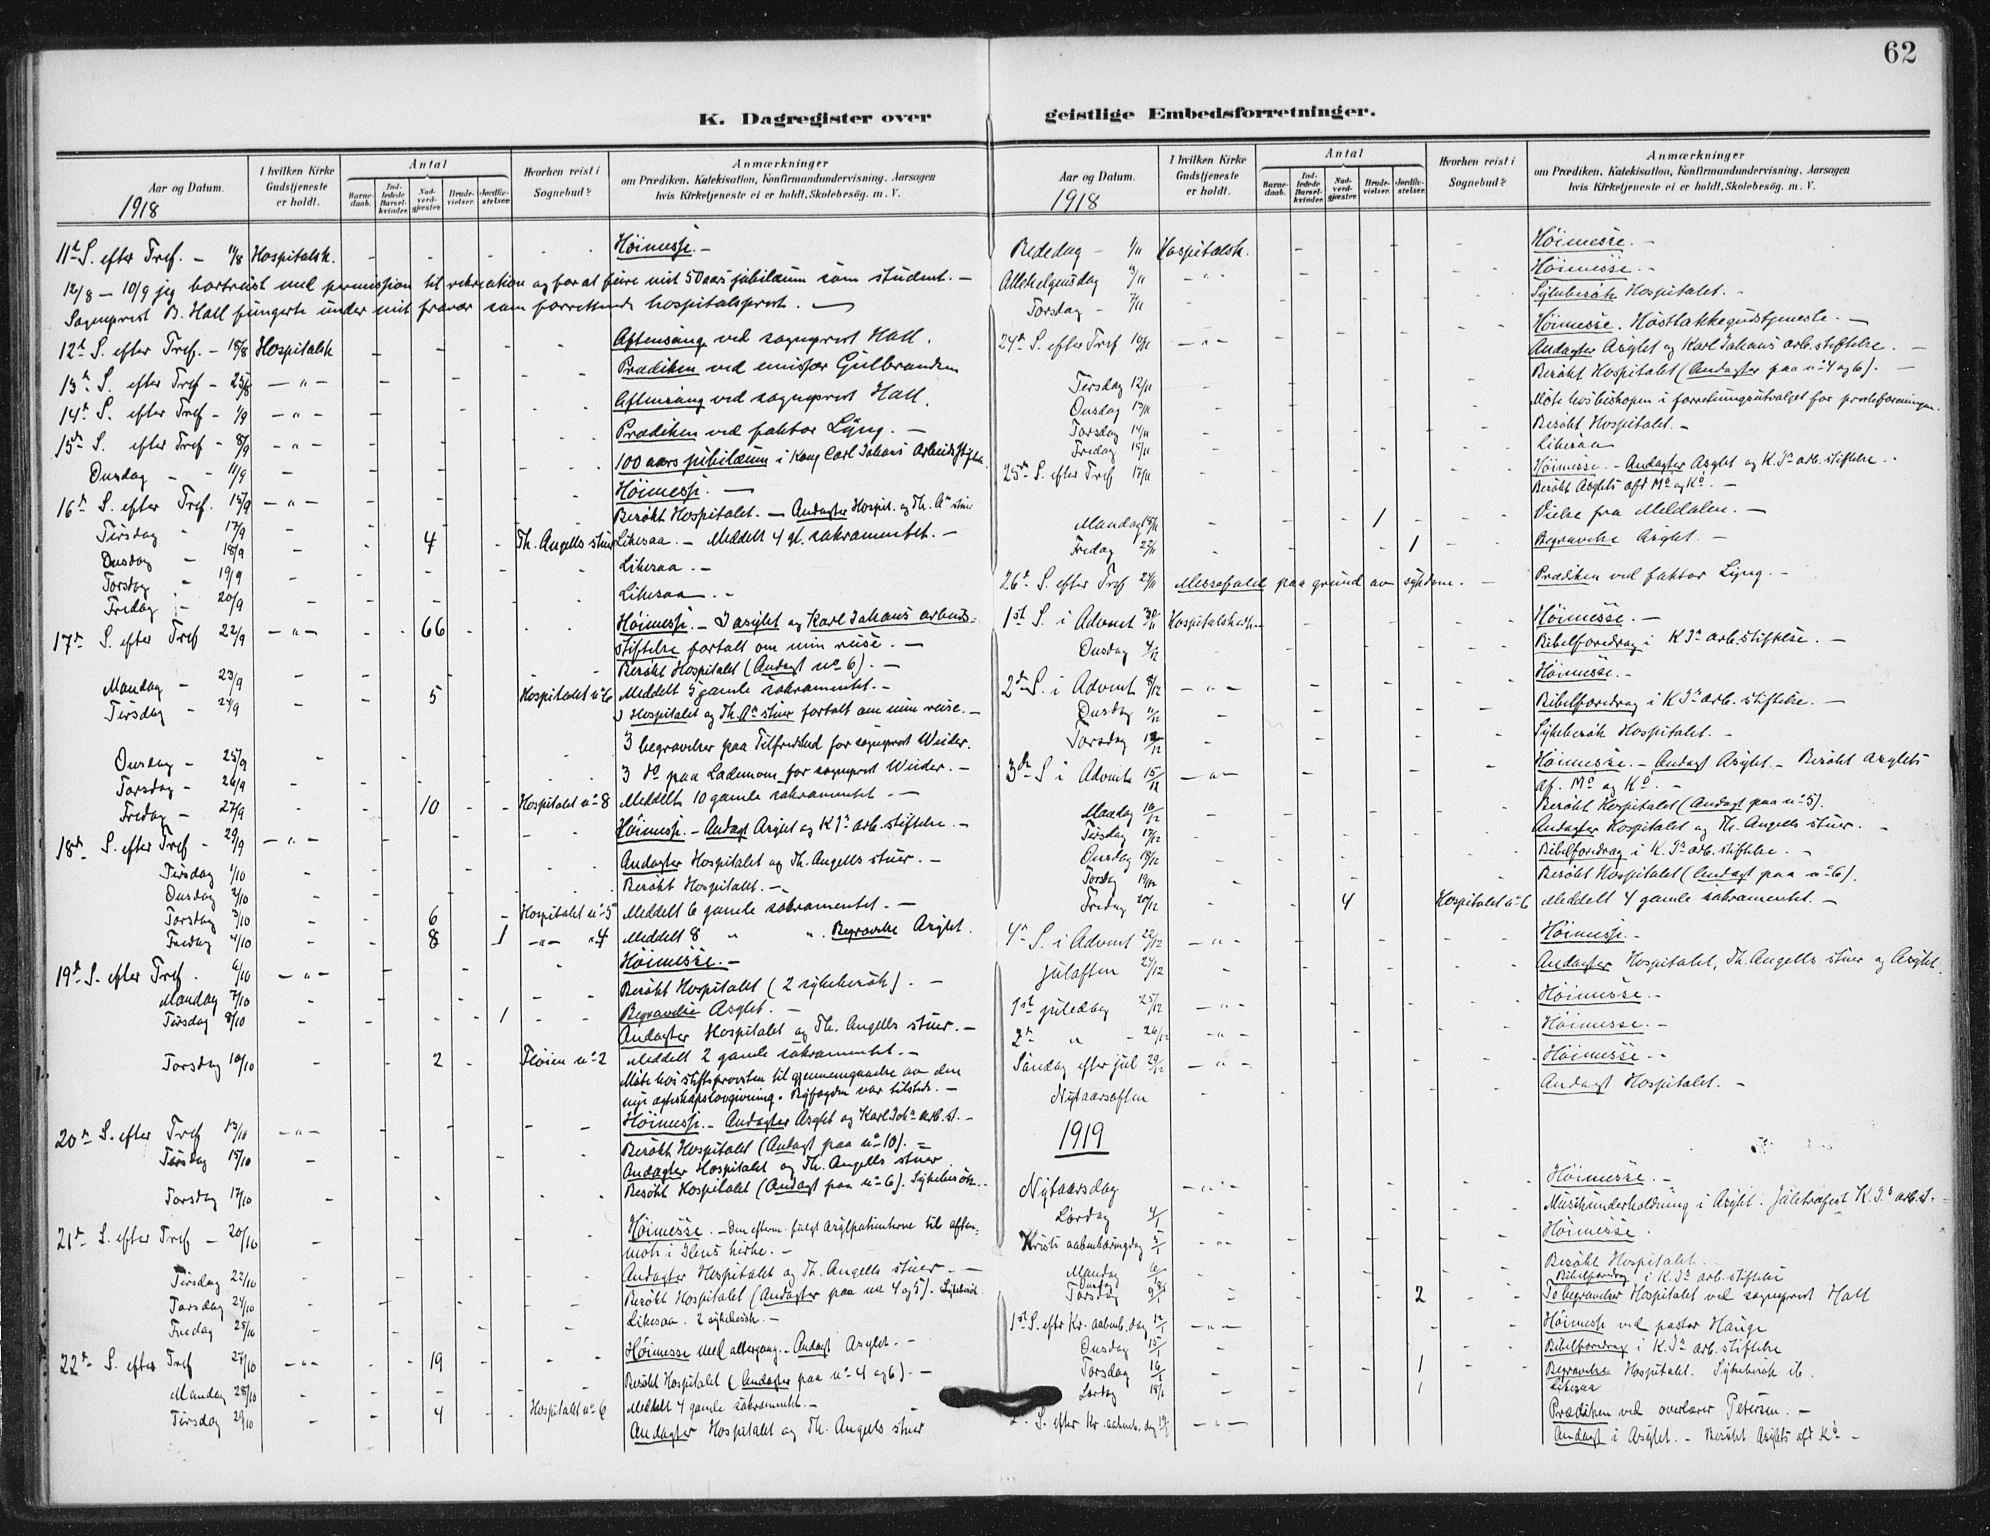 62
K. Dagregister over geistlige Embedsforretninger.
Aar og Datum.
1918
I hvilken Kirke Gudstjeneste er holdt.
Antal
Barne-daab.
Ind-ledede Barsel-kvinder.
Nad-verd-gjæster.
Brude-vielser.
Jordfæ-stelser.
Hvorhen reist i Sognebud?
Anmærkninger
om Prædiken, Katekisation, Konfirmandundervisning, Aarsagen
hvis Kirketjeneste ei er holdt, Skolebesøg. m. V.
11te S. efter Tref. – 11/8 Hospitalsk. Høimesse. –
12/8 – 10/9 jeg bortreist med permission til rekreation og for at feire mit 50 aars jubilæum som student. –
Sogneprest B. Hall fungerte under mit fravær som forrettende hospitalsprest. –
12te S. efter Tref. – 18/8 Hospitalsk Aftensang ved sogneprest Hall.
13de S. efter Tref – 25/8 – " – Prædiken ved emissær Gulbrandsen
14de S. efter Tref – 1/9 – " – Aftensang ved sogneprest Hall.
15de S. efter Tref – 8/9 – " – Prædiken ved faktor Ljng. –
Onsdag – 11/9 100 aars jubilæum i Kong Carl Johans Arbeidsstiftelse
16de S. efter Tref. 15/9 – " – Høimesse. –
Tirsdag – 17/9 Besøkt Hospitalet. – Andagter Hospit. og Th. As stuer
Onsdag – 18/9 4 Th. Angells stuer Likesaa. – Meddelt 4 gl. sakramentet. –
Torsdag 19/9 Likesaa. –
Fredag 20/9 Likesaa. –
17de S. efter Tref 22/9 – " – 66 Høimesse. – I asylet og Karl Johans arbeids-
stiftelse fortalt om min reise. –
Mandag – 23/9 Besøkt Hospitalet (Andagt no 6). –
Tirsdag – 24/9 5 Hospitalet no 6 Meddelt 5 gamle sakramentet. –
I Hospitalet og Th. As stuer fortalt om min reise. –
Onsdag – 25/9 3 begravelser paa Tilfredshed for sogneprest Weider.
Torsdag – 26/9 3 do paa Lademoen for sogneprest Weider. –
Fredag – 27/9 10 Hospitalet no 8 Meddelt 10 gamle sakramentet –
18de S. efter Tref – 29/9 – " – Høimesse. – Andagt Asylet og K Js arb. stiftelse. –
Tirsdag 1/10 Andagter Hospitalet og Th. Angells stuer. –
Onsdag 2/10 Besøkt Hospitalet. –
Torsdag 3/10 6 Hospitalet no 5 Meddelt 6 gamle sakramentet. –
Fredag 4/10 8 1 – " – " 4 Meddelt 8 " ". Begravelse Asylet.
19de S. efter Tref. 6/10 – " – Høimesse. –
Mandag 7/10 Besøkt Hospitalet (2 sykebesøk). –
Tirsdag 8/10 1 Begravelse Asylet. –
Andagter Hospitalet og Th. Angells stuer. –
Torsdag 10/10 2 Fløien no 2 Meddelt 2 gamle sakramentet. –
Møte hos stiftsprovsten til gjennemgaaelse av den
nye egteskapslovgivning. Byfogden var tilstede. –
20de S. efter Tref 13/10 – " – Høimesse. – Andagter Asylet og Karl Johs arb. st. –
Tirsdag 15/10 Besøkt Hospitalet (Andagt paa no 10). –
Andagter Hospitalet og Th. Angells stuer
Torsdag 17/10 Besøkt Hospitalet (Andagt paa no 6). Sykebesøk. –
21de S. efter Tref – 20/10 Høimesse. – Den efterm. fulgt Asylpatienterne til aften-
møte i Ilens kirke. –
Tirsdag 22/10 Andagter Hospitalet og Th. Angells stuer. –
Torsdag 24/10 Besøkt Hospitalet (Andagter paa no 4 og 5). Sykebesøk
Fredag 25/10 Likesaa. 2 sykebesøk. –
22de S. efter Tref 27/10 – " – 19 Høimesse med altergang. – Andagt Asylet. –
Mandag 28/10 Besøkt Hospitalet (Andagter paa no 4 og 6). –
Tirsdag 29/10 4 Hospitalet no 6 Meddelt 4 gamle sakramentet. –
Andagter Hospitalet og Th. Angells stuer
Aar og Datum.
1918
I hvilken Kirke Gudstjeneste er holdt.
Antal
Barne-daab.
Ind-ledede Barsel-kvinder.
Nad-verd-gjæster.
Brude-vielser.
Jordfæ-stelser.
Hvorhen reist i Sognebud?
Anmærkninger
om Prædiken, Katekisation, Konfirmandundervisning, Aarsagen
hvis Kirketjeneste ei er holdt, Skolebesøg. m. V.
Bededag – 1/11 Hospitalsk. Høimesse. –
Allehelgensdag 3/11 – " – Høimesse. –
Torsdag – 7/11 Sykebesøk Hospitalet. –
24de S. efter Tref 10/11 – " – Høimesse. Høsttakkegudstjeneste. –
Andagter Asylet og Karl Johans arb. stiftelse. –
Tirsdag 12/11 Besøkt Hospitalet (Andagter paa no 4 og 6). –
Onsdag 13/11 Møte hos biskopen i forretningsutvalget for presteforeningen.
Torsdag 14/11 Besøkt Hospitalet. –
Fredag 15/11 Likesaa
25de S. efter Tref 17/11 Høimesse. – Andagter Asylet og K. Js arb. stiftelse. –
Besøkt Asylets afd Mo og Ko. –
Mandag 18/11 1 Vielse fra Meldalen. –
Fredag 22/11 1 Begravelse Asylet. –
26de S. efter Tref 24/11 Messefald paa grund av sykdom. – Prædiken ved faktor Ljng. –
1ste S. i Advent Hospitalskirken Høimesse. –
Onsdag 4/12 Bibelforedrag i K Js arb. stiftelse. –
2den S. i Advent 8/12 – " – Høimesse. –
Onsdag 11/12 Bibelforedrag i K Js arb. stiftelse. –
Torsdag 12/12 Sykebesøk Hospitalet. –
3die S. i Advent 15/12 – " – Høimesse. – Andagt Asylet. – Besøkt Asylets
af. Mo og Ko. –
Mandag 16/12 Besøkt Hospitalet (Andagt paa no 5).
Tirsdag 17/12 Andagter Hospitalet og Th. Angells stuer. –
Onsdag 18/12 Bibelforedrag i K. Js arb. stiftelse. –
Torsdag 19/12 Besøkt Hospitalet (Andagt paa no 6).
Fredag 20/12 4 Hospitalet no 6 Meddelt 4 gamle sakramentet. –
4de S. i Advent 22/12 – " – Høimesse. –
Juleaften 24/12 Andagter Hospitalet, Th. Angells stuer og Asylet.
1ste juledag 25/12 – " – Høimesse. –
2den " – 26/12 – " – Høimesse. –
Søndag efter jul 29/12 – " – Høimesse. –
Nytaarsaften Andagt Hospitalet. –
1919
Nytaarsdag – " – Høimesse. –
Lørdag 4/1 Musikunderholdning i Asylet. Juletræfest K. Js arb. st. –
Kristi aabenbaringsdag 5/1 – " – Høimesse.
Mandag 6/1 Besøkt Hospitalet.
Onsdag 8/1 Bibelforedrag i K. Js arb. stiftelse
Torsdag 9/1 2 To begravelser Hospitalet ved sogneprest Hall
1ste S. efter Kr. aabenb. dag 12/1 – " – Høimesse ved pastor Hauge
Onsdag 15/1 Bibelforedrag i K. Js arb. stiftelse
Torsdag 16/1 1 Begravelse Hospitalet. Sykebesøk ib.
Lørdag 18/1 1 Likesaa
S. efter Kr. aabenb. dag 19/1 – " – Prædiken ved overlærer Petersen. –
Andagt i Asylet. – Besøkt Asylets afd Ko –